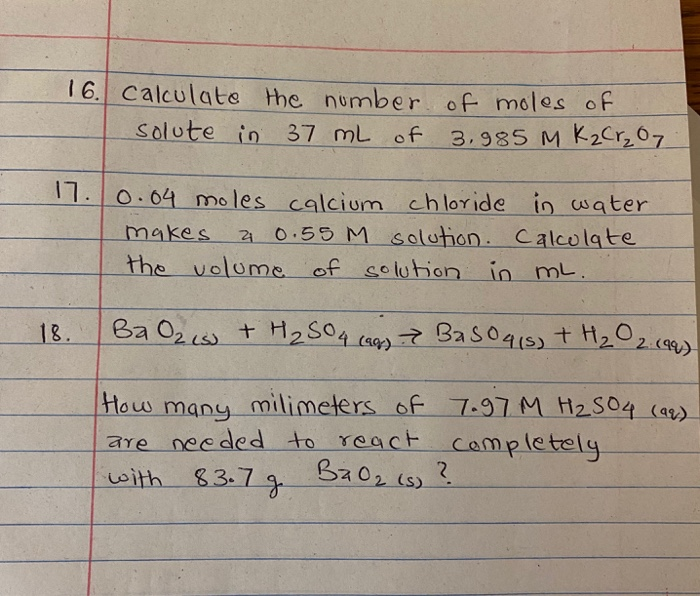 16. Calculate the number of moles of
solute in 37 mL of 3.985 M K₂Cr₂O₇
17. 0.04 moles calcium chloride in water
makes a 0.55 M solution. Calculate
the volume of solution in mL.
18. BaO₂(s) + H₂SO₄(aq) → BaSO₄(s) + H₂O₂(aq)
How many milimeters of 7.97 M H₂SO₄ (aq)
are needed to react completely
with 83.7 g BaO₂(s)?